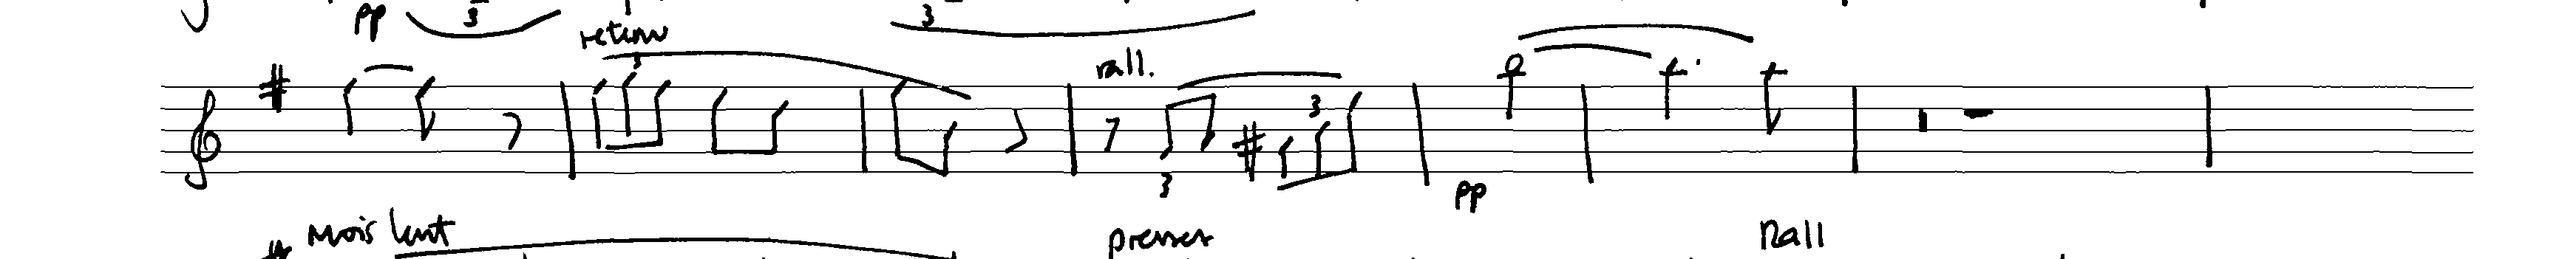 pp 3 3
retenu
3
rall.
3
3
pp
Mois lent presser Rall